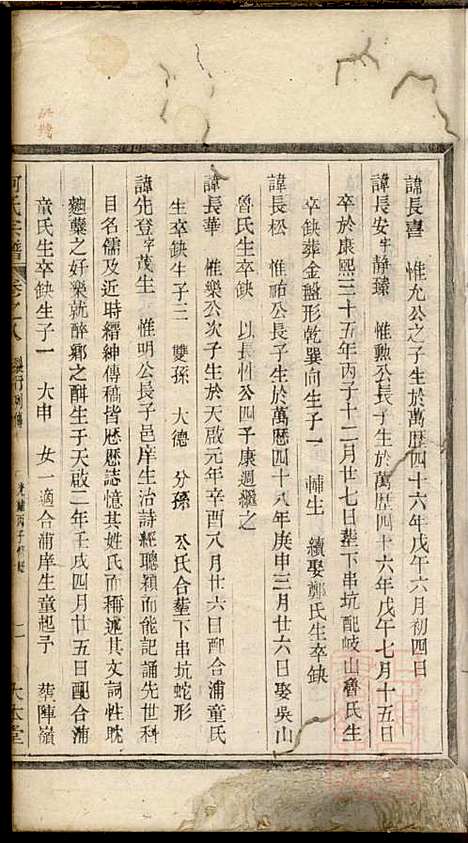 諱長喜 惟允公之子生於萬歷四十六年戊午六月初四日
諱長安字靜臻 惟勲公長子生於萬歷四十六年戊午七月十五日
卒於康熙三十五年丙子十二月廿七日塟下串坑配岐山魯氏生
卒缺葬金盤形乾巽向生子一 憪生 續娶鄭氏生卒缺
諱長松 惟祐公長子生於萬歷四十八年庚申三月廿六日娶吳山
魯氏生卒缺 以長性公四子康週繼之
諱長華 惟樂公次子生於天啟元年辛酉八月廿六日配合浦童氏
生卒缺生子三 雙孫 大德 分孫 公氏合塟下串坑蛇形
諱先登字茂生 惟明公長子邑庠生治詩經聰頴而能記誦先世科
目名儒及近時縉紳傳稿皆歷歷誌憶其姓氏而稱述其文詞性耽
麯糱之好樂就醉鄉之酣生于天啟二年壬戌四月廿五日配合浦
童氏生卒缺生子一 大申 女一適合浦庠生童起予 葬陣嶺
何氏宗譜 卷之八 光緒丙子修輯 一 大本堂